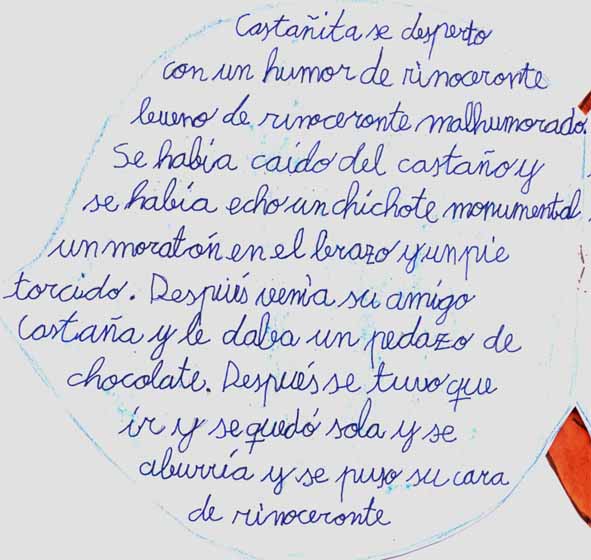 Castañita se desperto
con un humor de rinoceronte
bueno de rinoceronte malhumorado.
Se había caído del castaño y
se había echo un chichote monumental
un moratón en el brazo y un pie
torcido. Después venía su amigo
Castaña y le daba un pedazo de
chocolate. Después se tuvo que
ir y se quedó sola y se
aburría y se puso su cara
de rinoceronte